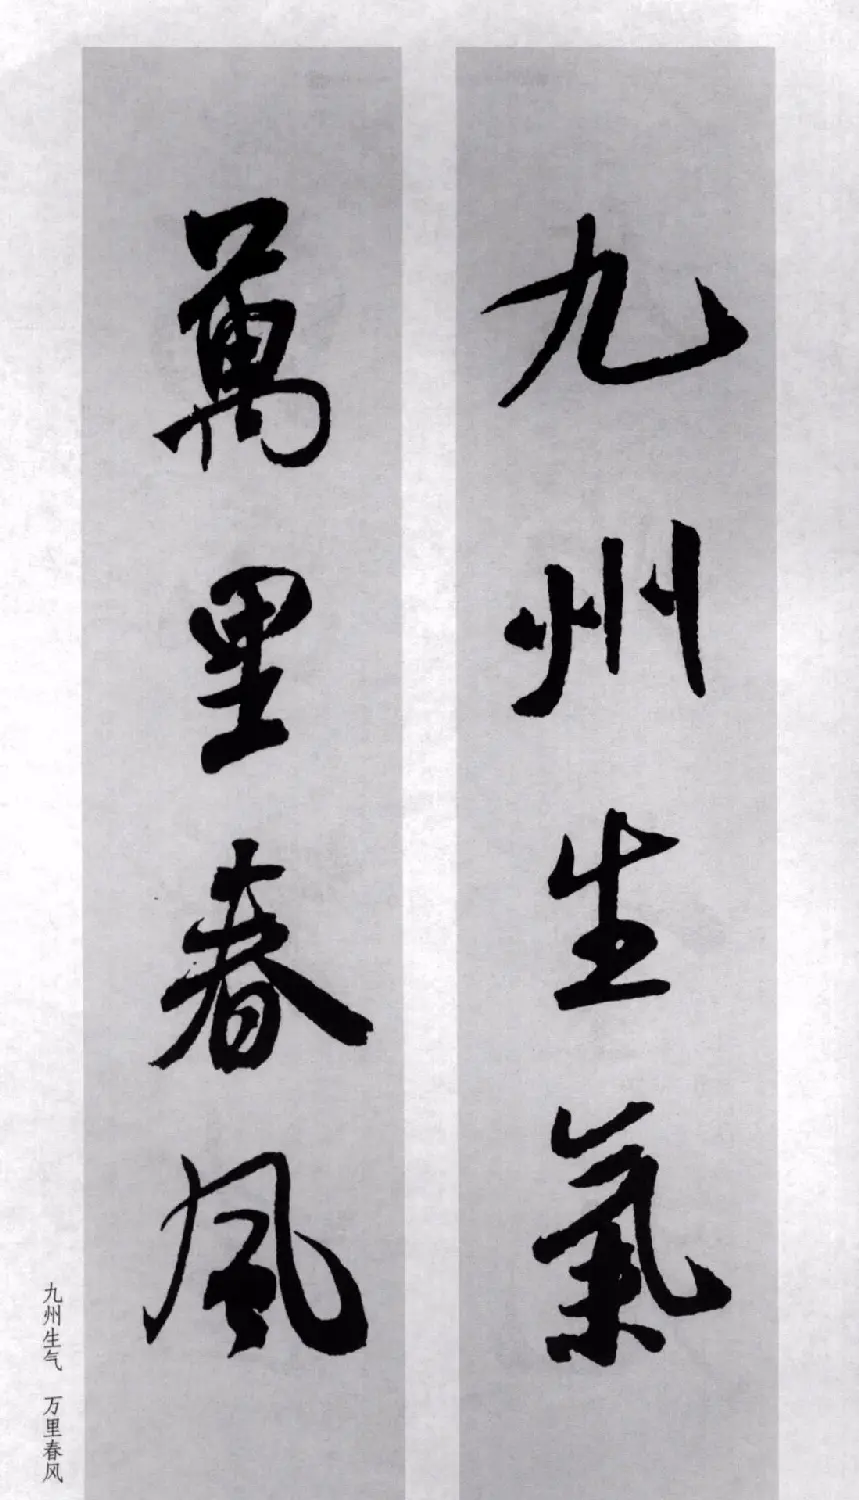 九州生氣
萬里春風
九州生气　万里春风